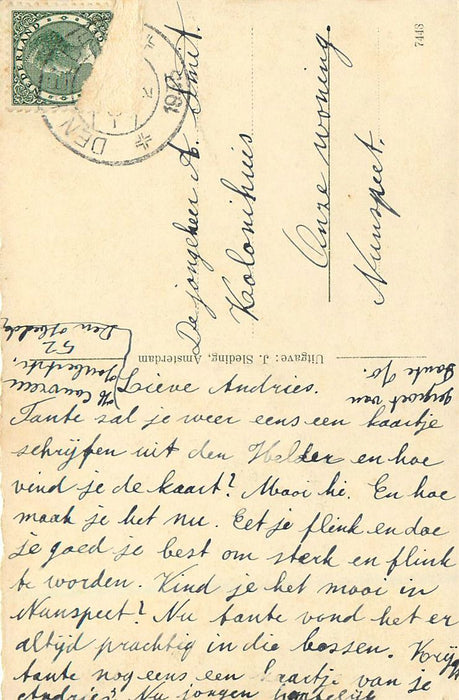 NEDERLAND
DEN
7448
De jongeheer A. Smit.
Kolonihuis
Onze woning.
Nunspeet.
Uitgave: J. Sleding, Amsterdam
Joubertstr.
52
Den Helder
gegroet van
tante Jo.
Lieve Andries.
Tante zal je weer eens een kaartje
schrijfen uit den Helder en hoe
vind je de kaart? Mooi hé. En hoe
maak je het nu. Eet je flink en doe
je goed je best om sterk en flink
te worden. Vind je het mooi in
Nunspeet? Nu tante vond het er
altijd prachtig in die bossen. Krijg
tante nog eens een kaartje van je
Andries? Nu jongen